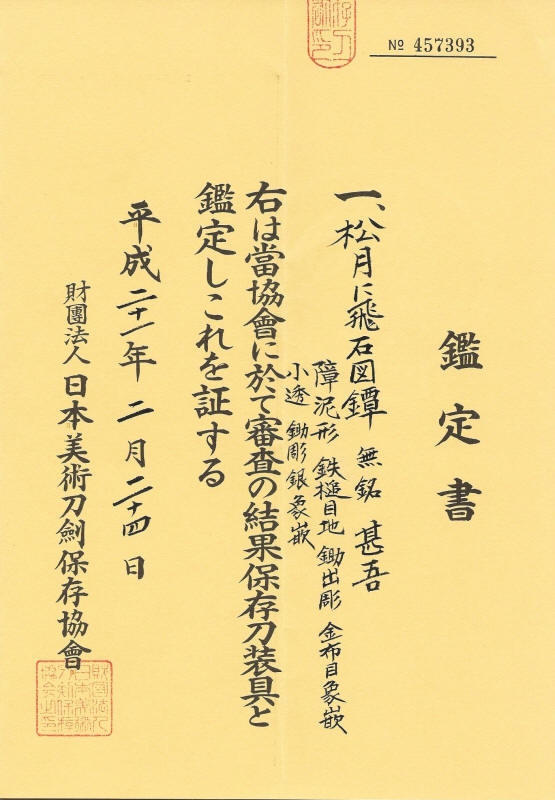 № 457393
鑑定書
一、松月に飛石図鐔 無銘 甚吾
障泥形 鉄槌目地 鋤出彫 金布目象嵌
小透 鋤彫銀象嵌
右は當協會に於て審査の結果保存刀装具と
鑑定しこれを証する
平成二十一年二月二十四日
財團法人日本美術刀劍保存協會